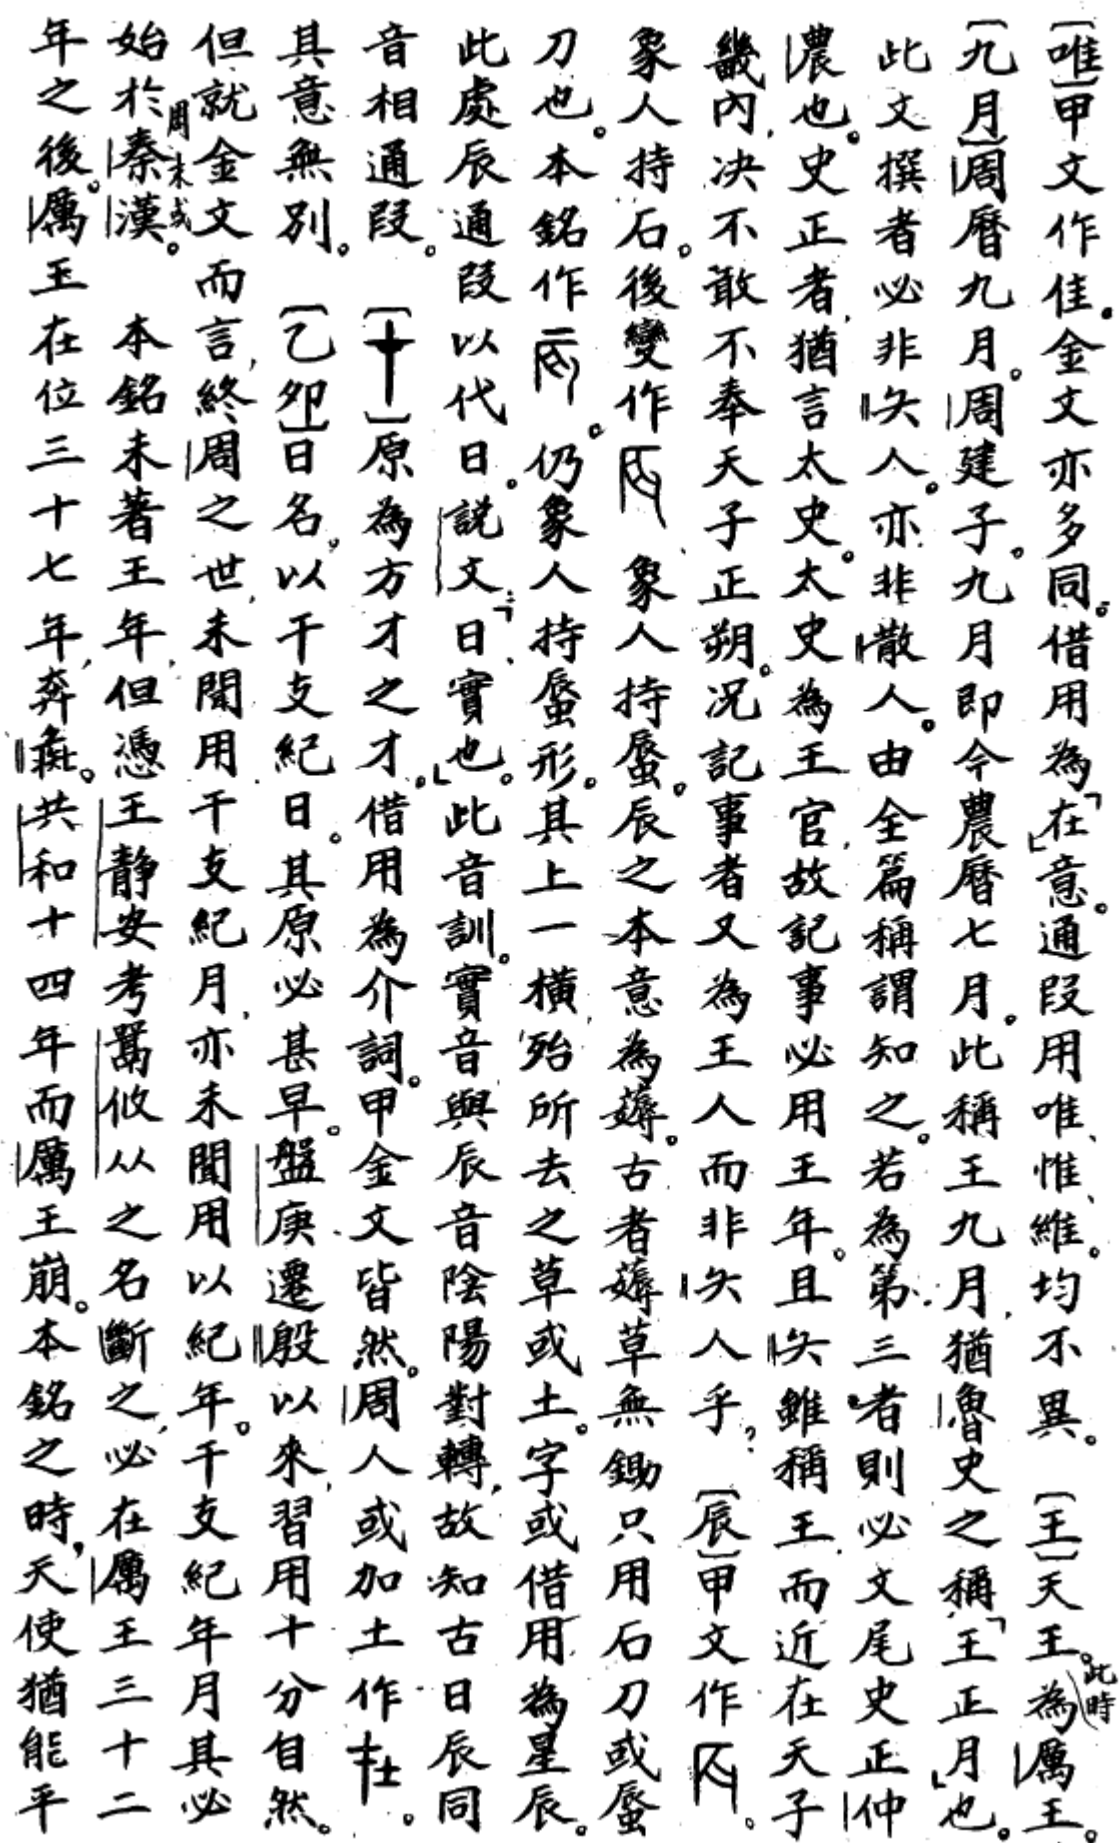 〔唯〕甲文作隹。金文亦多同。借用為「在」意。通叚用唯、惟、維。均不異。〔王〕天王。此時為厲王。
〔九月〕周曆九月。周建子。九月即今農曆七月。此稱王九月，猶魯史之稱「王正月」也。
此文撰者必非夨人。亦非散人。由全篇稱謂知之。若為第三者則必文尾史正仲
農也。史正者，猶言太史。太史為王官，故記事必用王年。且夨雖稱王，而近在天子
畿內，決不敢不奉天子正朔。況記事者又為王人而非夨人乎？〔辰〕甲文作。
象人持石。後變作、象人持蜃。辰之本意為薅。古者薅草無鋤只用石刀或蜃
刀也。本銘作。仍象人持蜃形。其上一橫，殆所去之草或土。字或借用為星辰。
此處辰通叚以代日。說文：「日、實也。」此音訓。實音與辰音陰陽對轉，故知古日辰同
音相通叚。〔十〕原為方才之才。借用為介詞。甲金文皆然。周人或加土作𡉈。
其意無別。〔乙卯〕日名，以干支紀日。其原必甚早。盤庚遷殷以來，習用十分自然。
但就金文而言，終周之世，未聞用干支紀月，亦未聞用以紀年。干支紀年月其必
始於周末或秦漢。本銘未著王年，但憑王靜安考鬲攸从之名斷之，必在厲王三十二
年之後。厲王在位三十七年，奔彘。共和十四年而厲王崩。本銘之時，天使猶能平